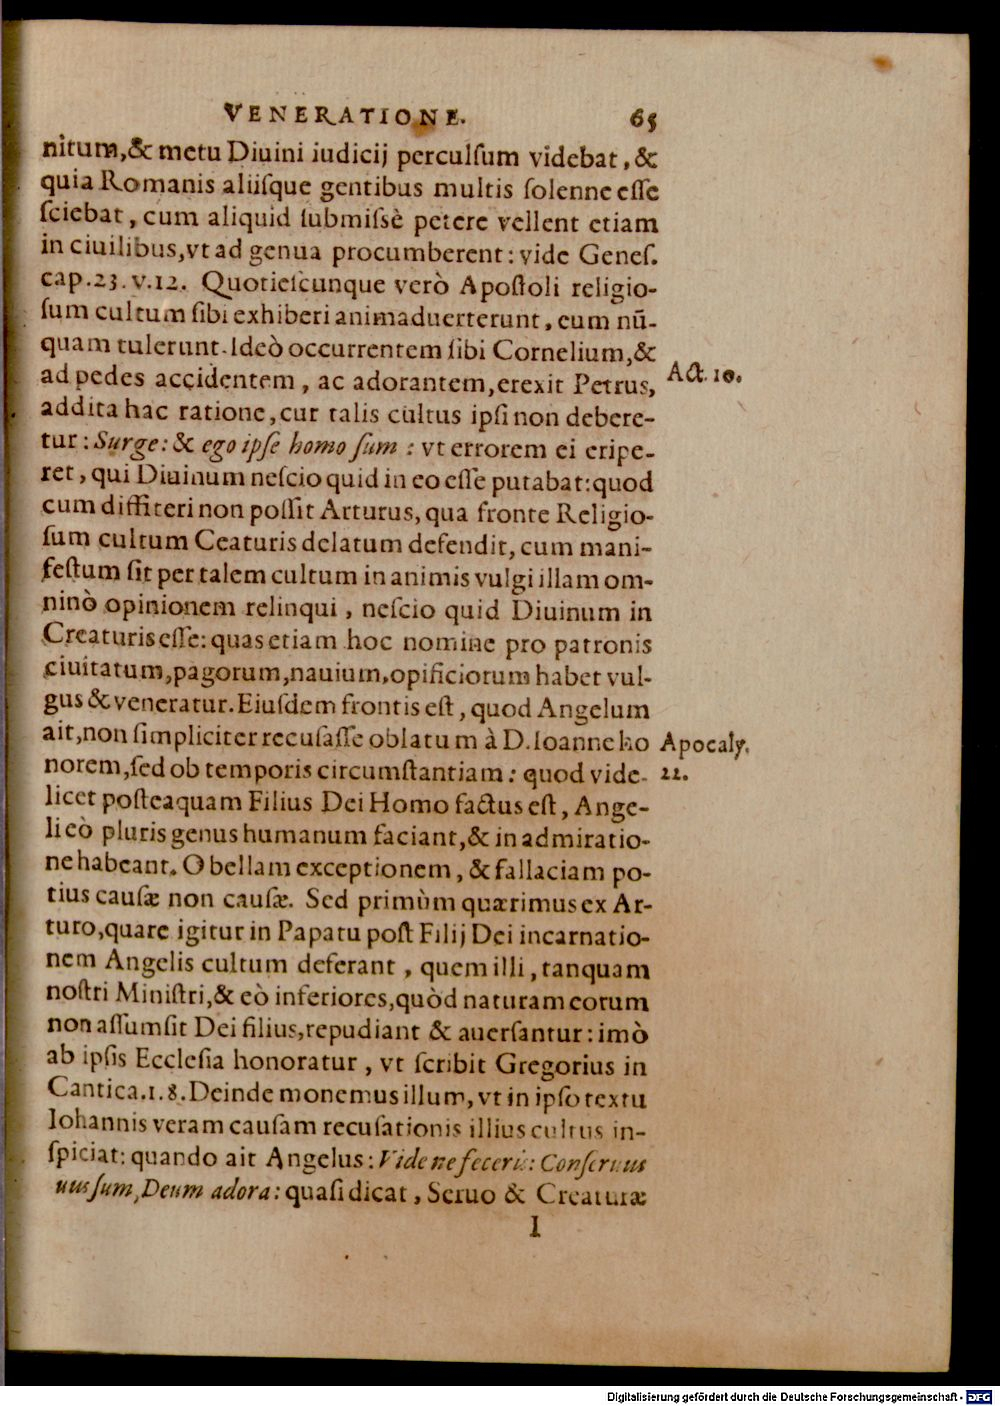 VENERATIONE. 65
nitum,& metu Diuini iudicij perculſum videbat, &
quia Romanis aliiſque gentibus multis ſolenne eſſe
ſciebat, cum aliquid ſubmiſsè petere vellent etiam
in ciuilibus, vt ad genua procumberent: vide Geneſ.
cap. 23. v. 12. Quotieſcunque verò Apoſtoli religio-
ſum cultum ſibi exhiberi animaduerterunt, eum nū-
quam tulerunt. Ideò occurrentem ſibi Cornelium, &
ad pedes accidentem, ac adorantem, erexit Petrus,
Act. 10.
addita hac ratione, cur talis cultus ipſi non debere-
tur: Surge: & ego ipſe homo ſum: vt errorem ei eripe-
ret, qui Diuinum neſcio quid in eo eſſe putabat: quod
cum diffiteri non poſſit Arturus, qua fronte Religio-
ſum cultum Ceaturis delatum defendit, cum mani-
feſtum ſit per talem cultum in animis vulgi illam om-
ninò opinionem relinqui, neſcio quid Diuinum in
Creaturis eſſe: quas etiam hoc nomine pro patronis
ciuitatum, pagorum, nauium, opificiorum habet vul-
gus & veneratur. Eiuſdem frontis eſt, quod Angelum
ait, non ſimpliciter recuſaſſe oblatum à D. Ioanne ho
Apocaly.
norem, ſed ob temporis circumſtantiam: quod vide-
22.
licet poſteaquam Filius Dei Homo factus eſt, Ange-
li eò pluris genus humanum faciant, & in admiratio-
ne habeant. O bellam exceptionem, & fallaciam po-
tius cauſæ non cauſæ. Sed primùm quærimus ex Ar-
turo, quare igitur in Papatu poſt Filij Dei incarnatio-
nem Angelis cultum deferant, quem illi, tanquam
noſtri Miniſtri, & eò inferiores, quòd naturam eorum
non aſſumſit Dei filius, repudiant & auerſantur: imò
ab ipſis Eccleſia honoratur, vt ſcribit Gregorius in
Cantica. 1. 8. Deinde monemus illum, vt in ipſo textu
Iohannis veram cauſam recuſationis illius cultus in-
ſpiciat: quando ait Angelus: Vide ne feceris: Conſeruus
tuus ſum, Deum adora: quaſi dicat, Seruo & Creaturæ
I
Digitalisierung gefördert durch die Deutsche Forschungsgemeinschaft - DFG